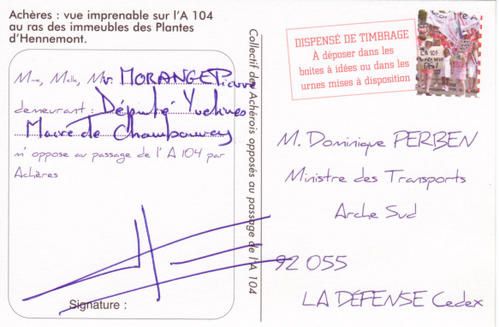 Achères : vue imprenable sur l'A 104
au ras des immeubles des Plantes
d'Hennemont.
MORANGE Pierre
demeurant : Député Yvelines
Maire de Chambourcy
m'oppose au passage de l'A 104 par
Achères
Signature :
Collectif des Achérois opposés au passage de l'A 104
DISPENSÉ DE TIMBRAGE
À déposer dans les
boites à idées ou dans les
urnes mises à disposition
M. Dominique PERBEN
Ministre des Transports
Arche Sud
92 055
LA DÉFENSE Cedex